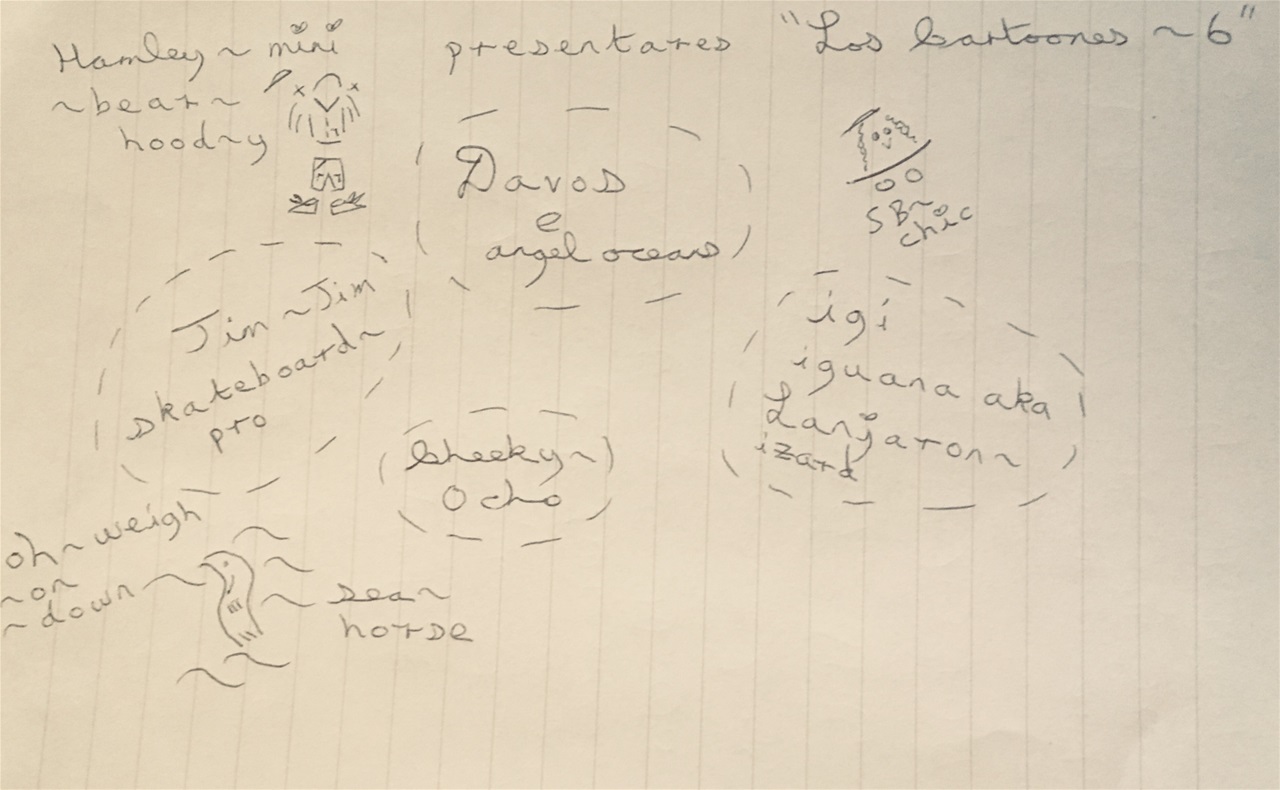 Hamley ~ mini presentares "Los Cartoones ~ 6"
~ bear ~
hoodry
Davos
e
angel oceans
SB ~
chic
Jim ~ Jim
skateboard ~
pro
igi
iguana aka
Lanjaron ~
izard
Cheeky ~
Ocho
oh ~ weigh
~ on
~ down
sea ~
horse